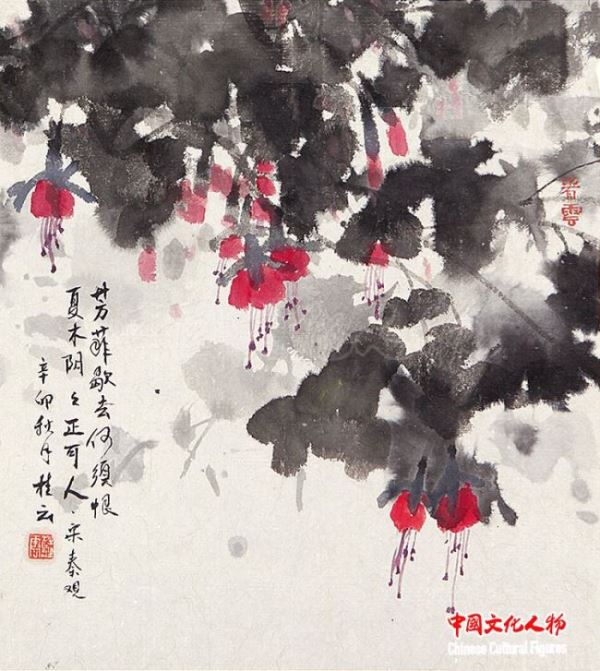 芳菲歇去何须恨
夏木阴々正可人·宋秦观
辛卯秋月桂云
看雲
中國文化人物
Chinese Cultural Figures